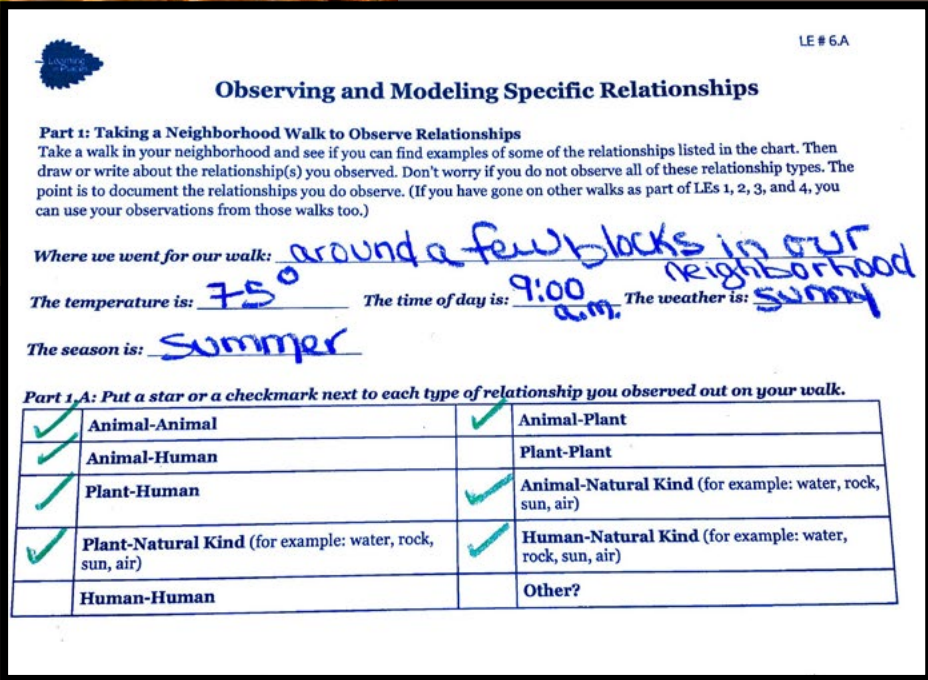 LE # 6.A
Learning
in Places
Observing and Modeling Specific Relationships
Part 1: Taking a Neighborhood Walk to Observe Relationships
Take a walk in your neighborhood and see if you can find examples of some of the relationships listed in the chart. Then
draw or write about the relationship(s) you observed. Don't worry if you do not observe all of these relationship types. The
point is to document the relationships you do observe. (If you have gone on other walks as part of LEs 1, 2, 3, and 4, you
can use your observations from those walks too.)
Where we went for our walk: around a few blocks in our
neighborhood
The temperature is: 75° The time of day is: 9:00 a.m. The weather is: sunny
The season is: Summer
Part 1.A: Put a star or a checkmark next to each type of relationship you observed out on your walk.
✓ Animal-Animal ✓ Animal-Plant
✓ Animal-Human Plant-Plant
✓ Plant-Human ✓ Animal-Natural Kind (for example: water, rock,
sun, air)
✓ Plant-Natural Kind (for example: water, rock,
sun, air)
✓ Human-Natural Kind (for example: water,
rock, sun, air)
Human-Human Other?